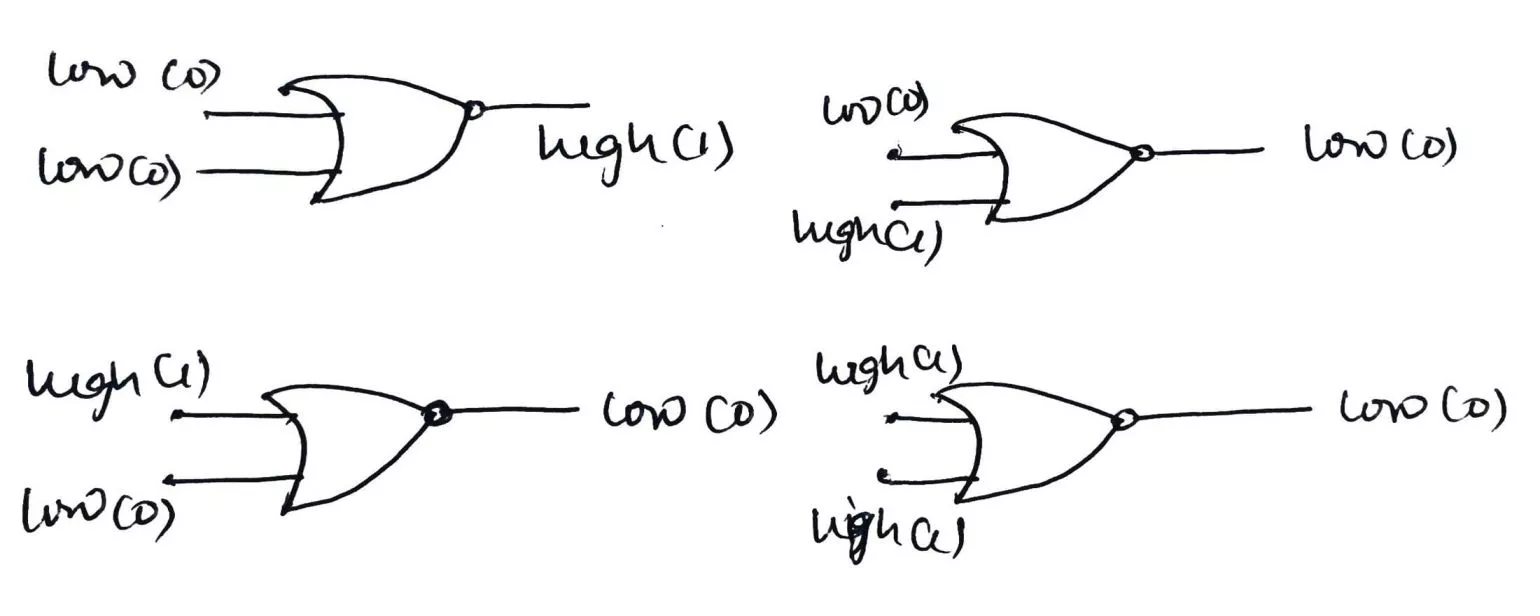 low (0)
low (0)
high (1)
low (0)
high (1)
low (0)
high (1)
low (0)
low (0)
high (1)
high (1)
low (0)